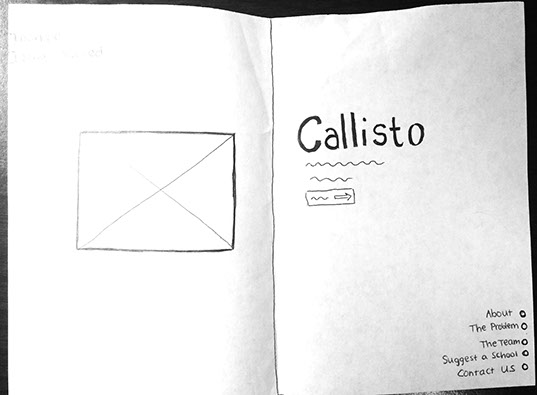 Callisto
About
The Problem
The Team
Suggest a School
Contact Us